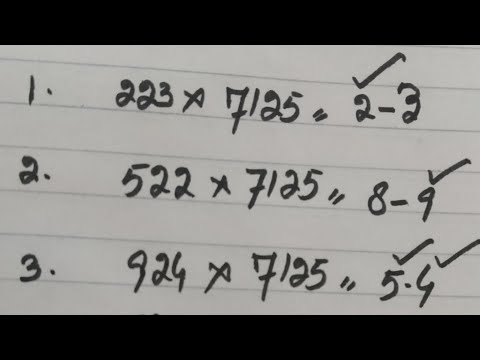 1. 223 × 7125 = 2-3
2. 522 × 7125 = 8-9
3. 924 × 7125 = 5.4